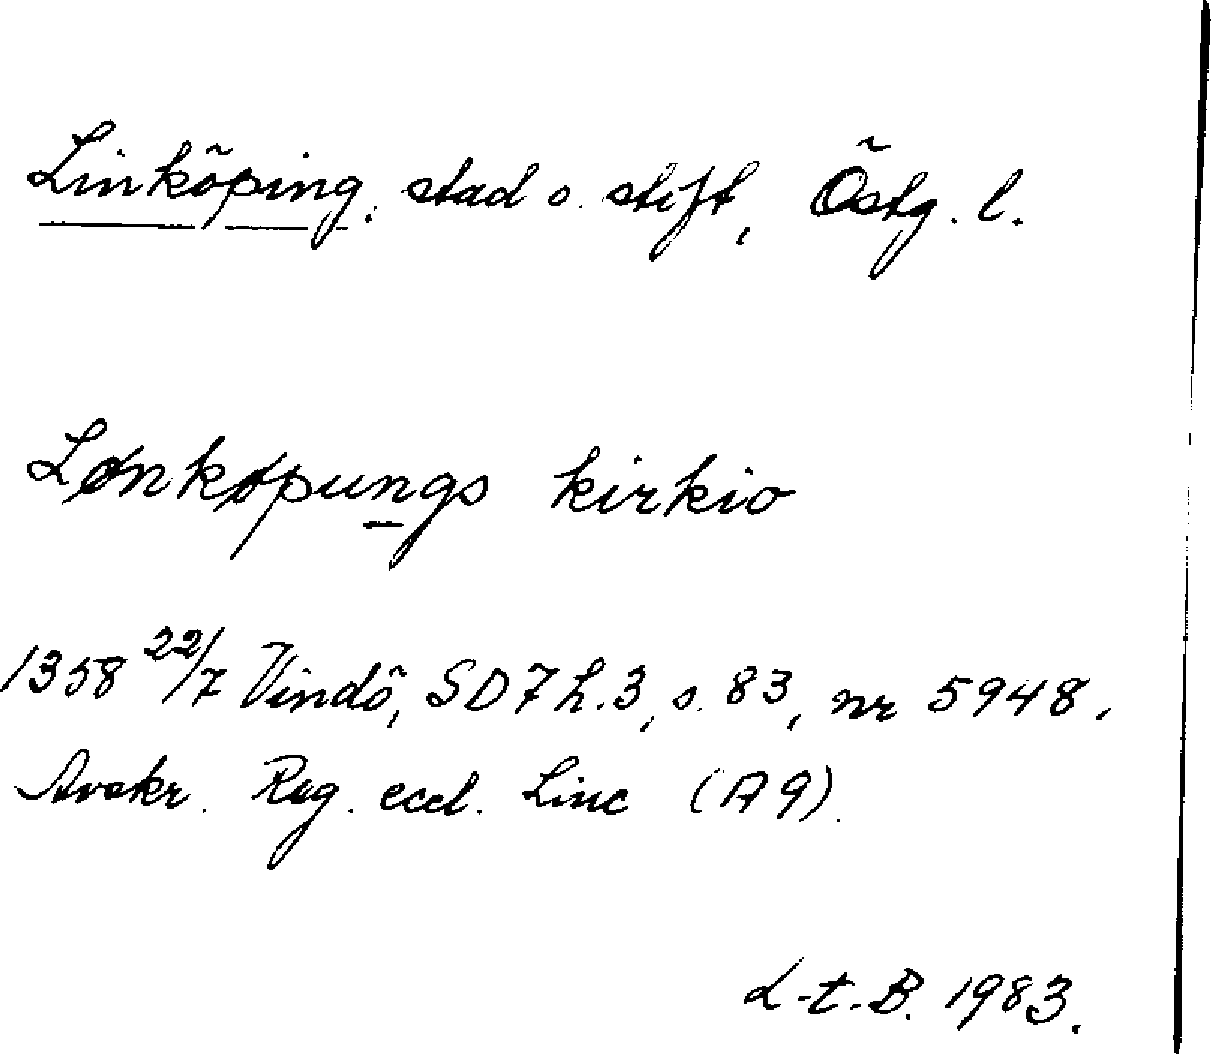 Linköping, stad o. stift, Östg. l.
Lønkøpungs kirkio
1358 22/7 Vindö, SD 7 h. 3, s. 83, nr 5948.
Avskr. Reg. eccl. Linc (A 9).
L-t. B. 1983.